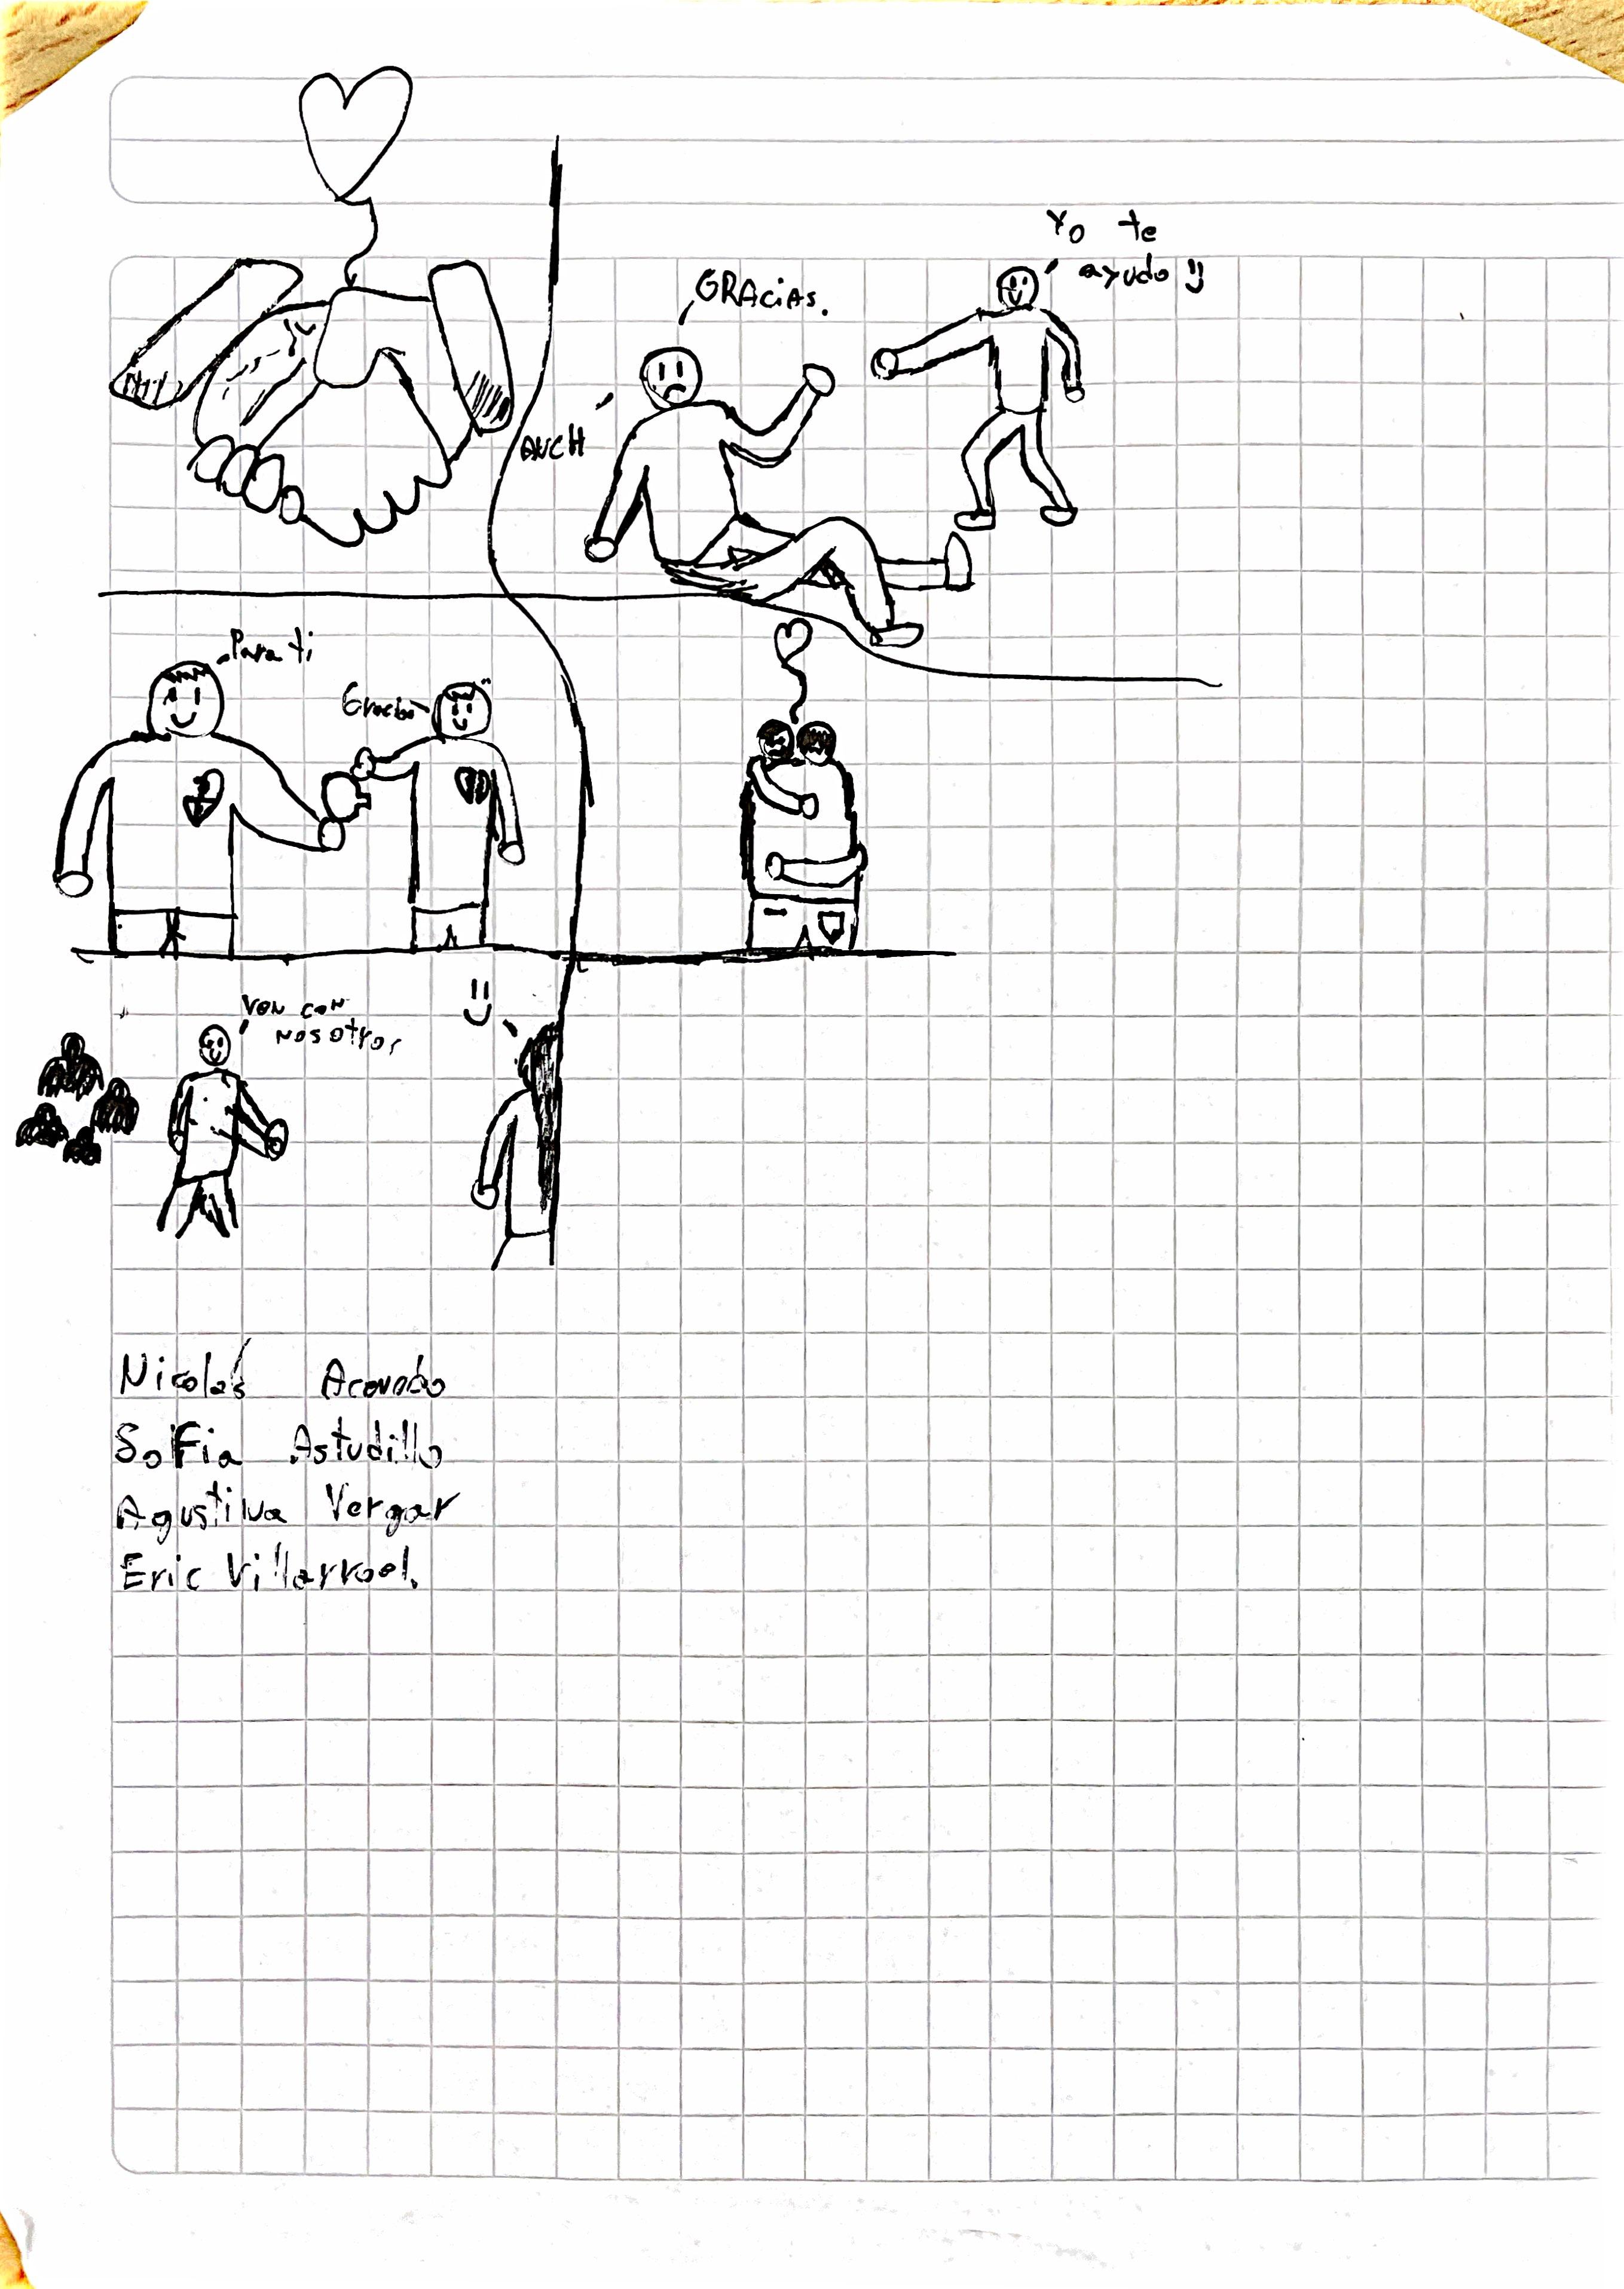 Yo te
ayudo
GRACiAS.
AUCH
Para ti
Gracias
VEN CON
NOSOTROS
Nicolás Acevedo
Sofia Astudillo
Agustina Vergar
Eric Villarroel.